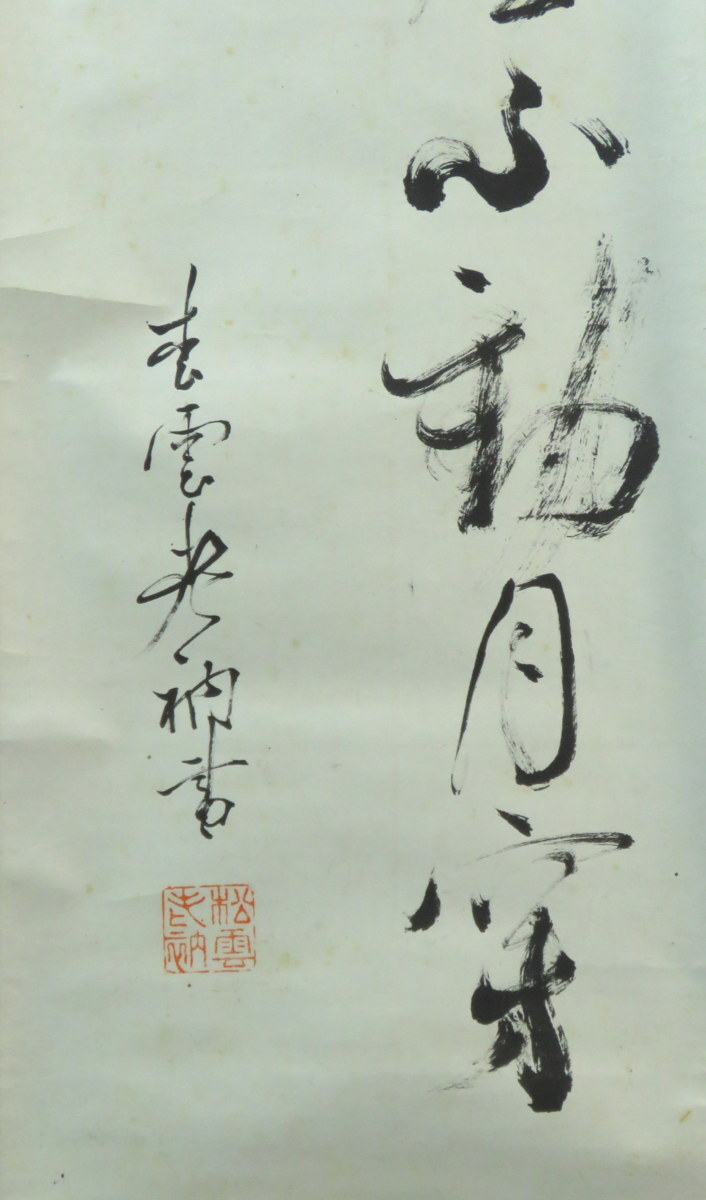 不動月穿
枩雲老衲書
松雲
老衲